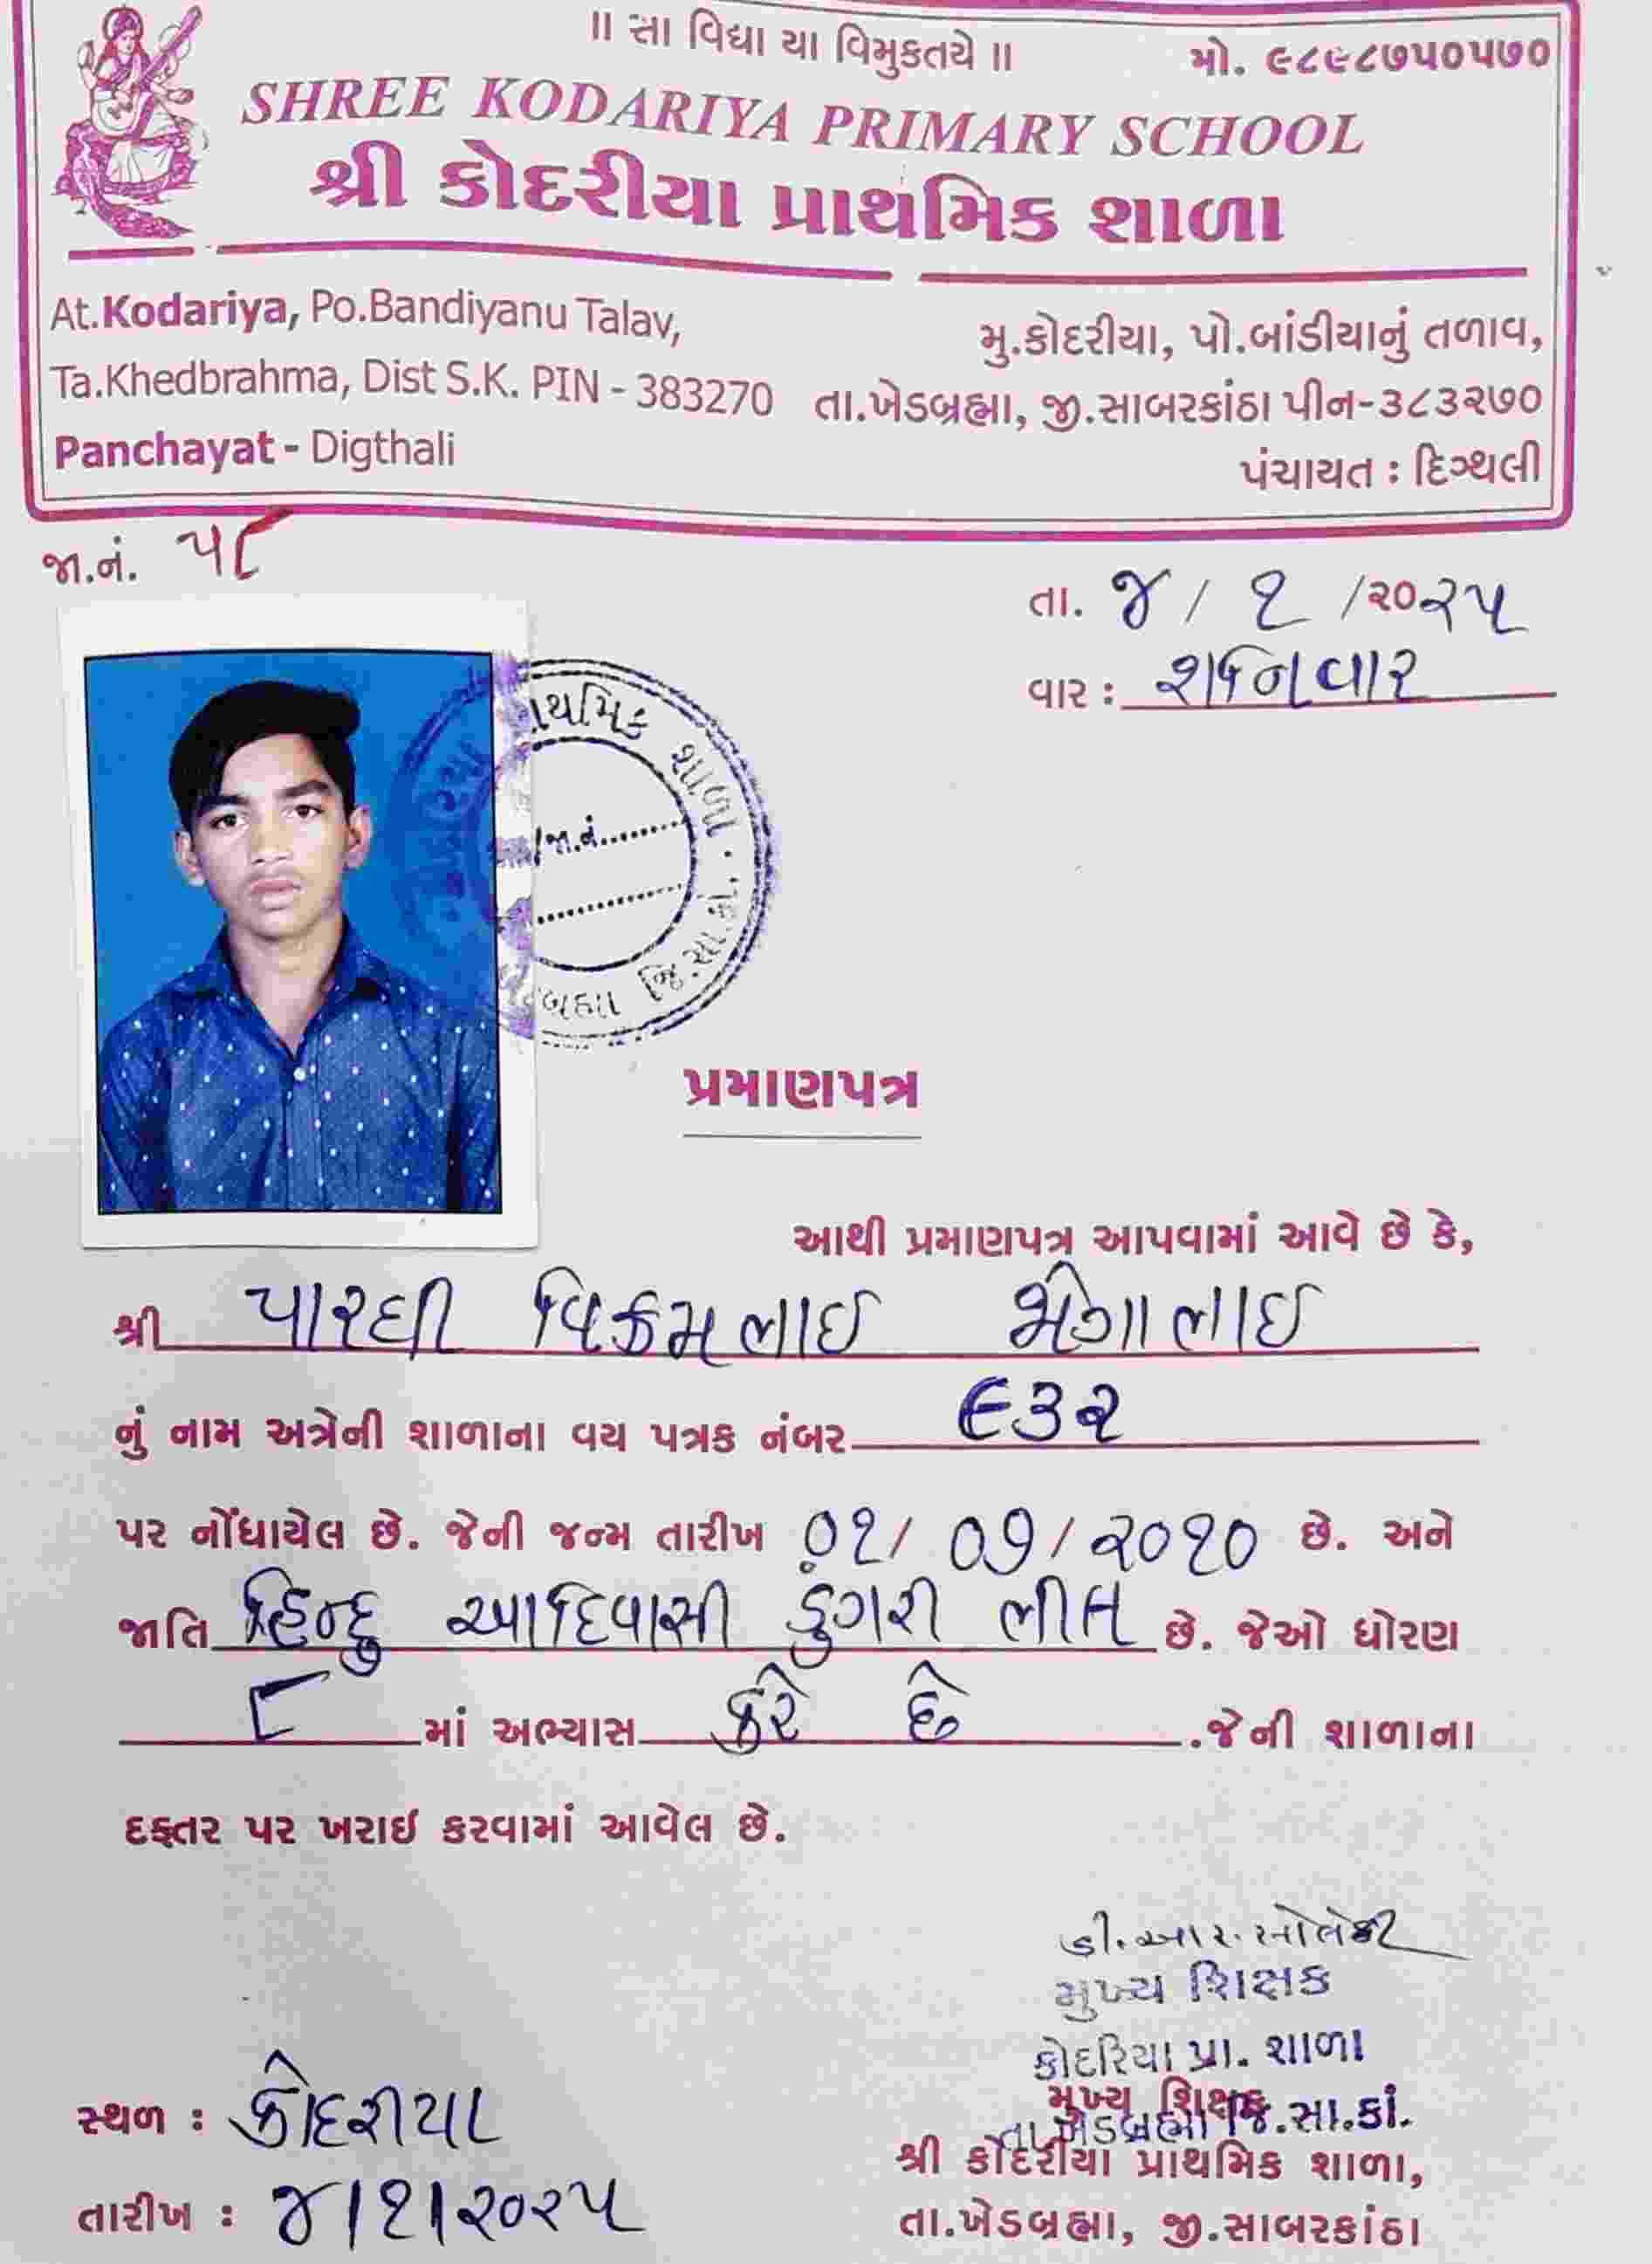 ॥ સા વિદ્યા યા વિમુક્તયે ॥
મો. ૯૮૯૮૭૫૦૫૭૦
SHREE KODARIYA PRIMARY SCHOOL
શ્રી કોદરીયા પ્રાથમિક શાળા
At.Kodariya, Po.Bandiyanu Talav,
Ta.Khedbrahma, Dist S.K. PIN - 383270
Panchayat - Digthali
મુ.કોદરીયા, પો.બાંડીયાનું તળાવ,
તા.ખેડબ્રહ્મા, જી.સાબરકાંઠા પીન-૩૮૩૨૭૦
પંચાયત : દિગ્થલી
જા.નં. ૫૮
તા. ૪ / ૧ /૨૦૨૫
વાર : શનિવાર
પ્રાથમિક શાળા. જિ.સા.કાં.
/જા.નં.
પ્રમાણપત્ર
આથી પ્રમાણપત્ર આપવામાં આવે છે કે,
શ્રી પારઘી વિક્રમભાઈ ભાઈ
નું નામ અત્રેની શાળાના વય પત્રક નંબર ૯૩૨
પર નોંધાયેલ છે. જેની જન્મ તારીખ ૦૧/ ૦૭/ ૨૦૧૦ છે. અને
જાતિ હિન્દુ આદિવાસી ડુંગરી ભીલ છે. જેઓ ધોરણ
૮ માં અભ્યાસ કરે છે .જેની શાળાના
દફ્તર પર ખરાઇ કરવામાં આવેલ છે.
ડી.આર.સોલંકી
મુખ્ય શિક્ષક
કોદરિયા પ્રા. શાળા
મુખ્ય શિક્ષક
તા.ખેડબ્રહ્મા જિ.સા.કાં.
શ્રી કોદરીયા પ્રાથમિક શાળા,
તા.ખેડબ્રહ્મા, જી.સાબરકાંઠા
સ્થળ : કોદરીયા
તારીખ : ૪/૧/૨૦૨૫